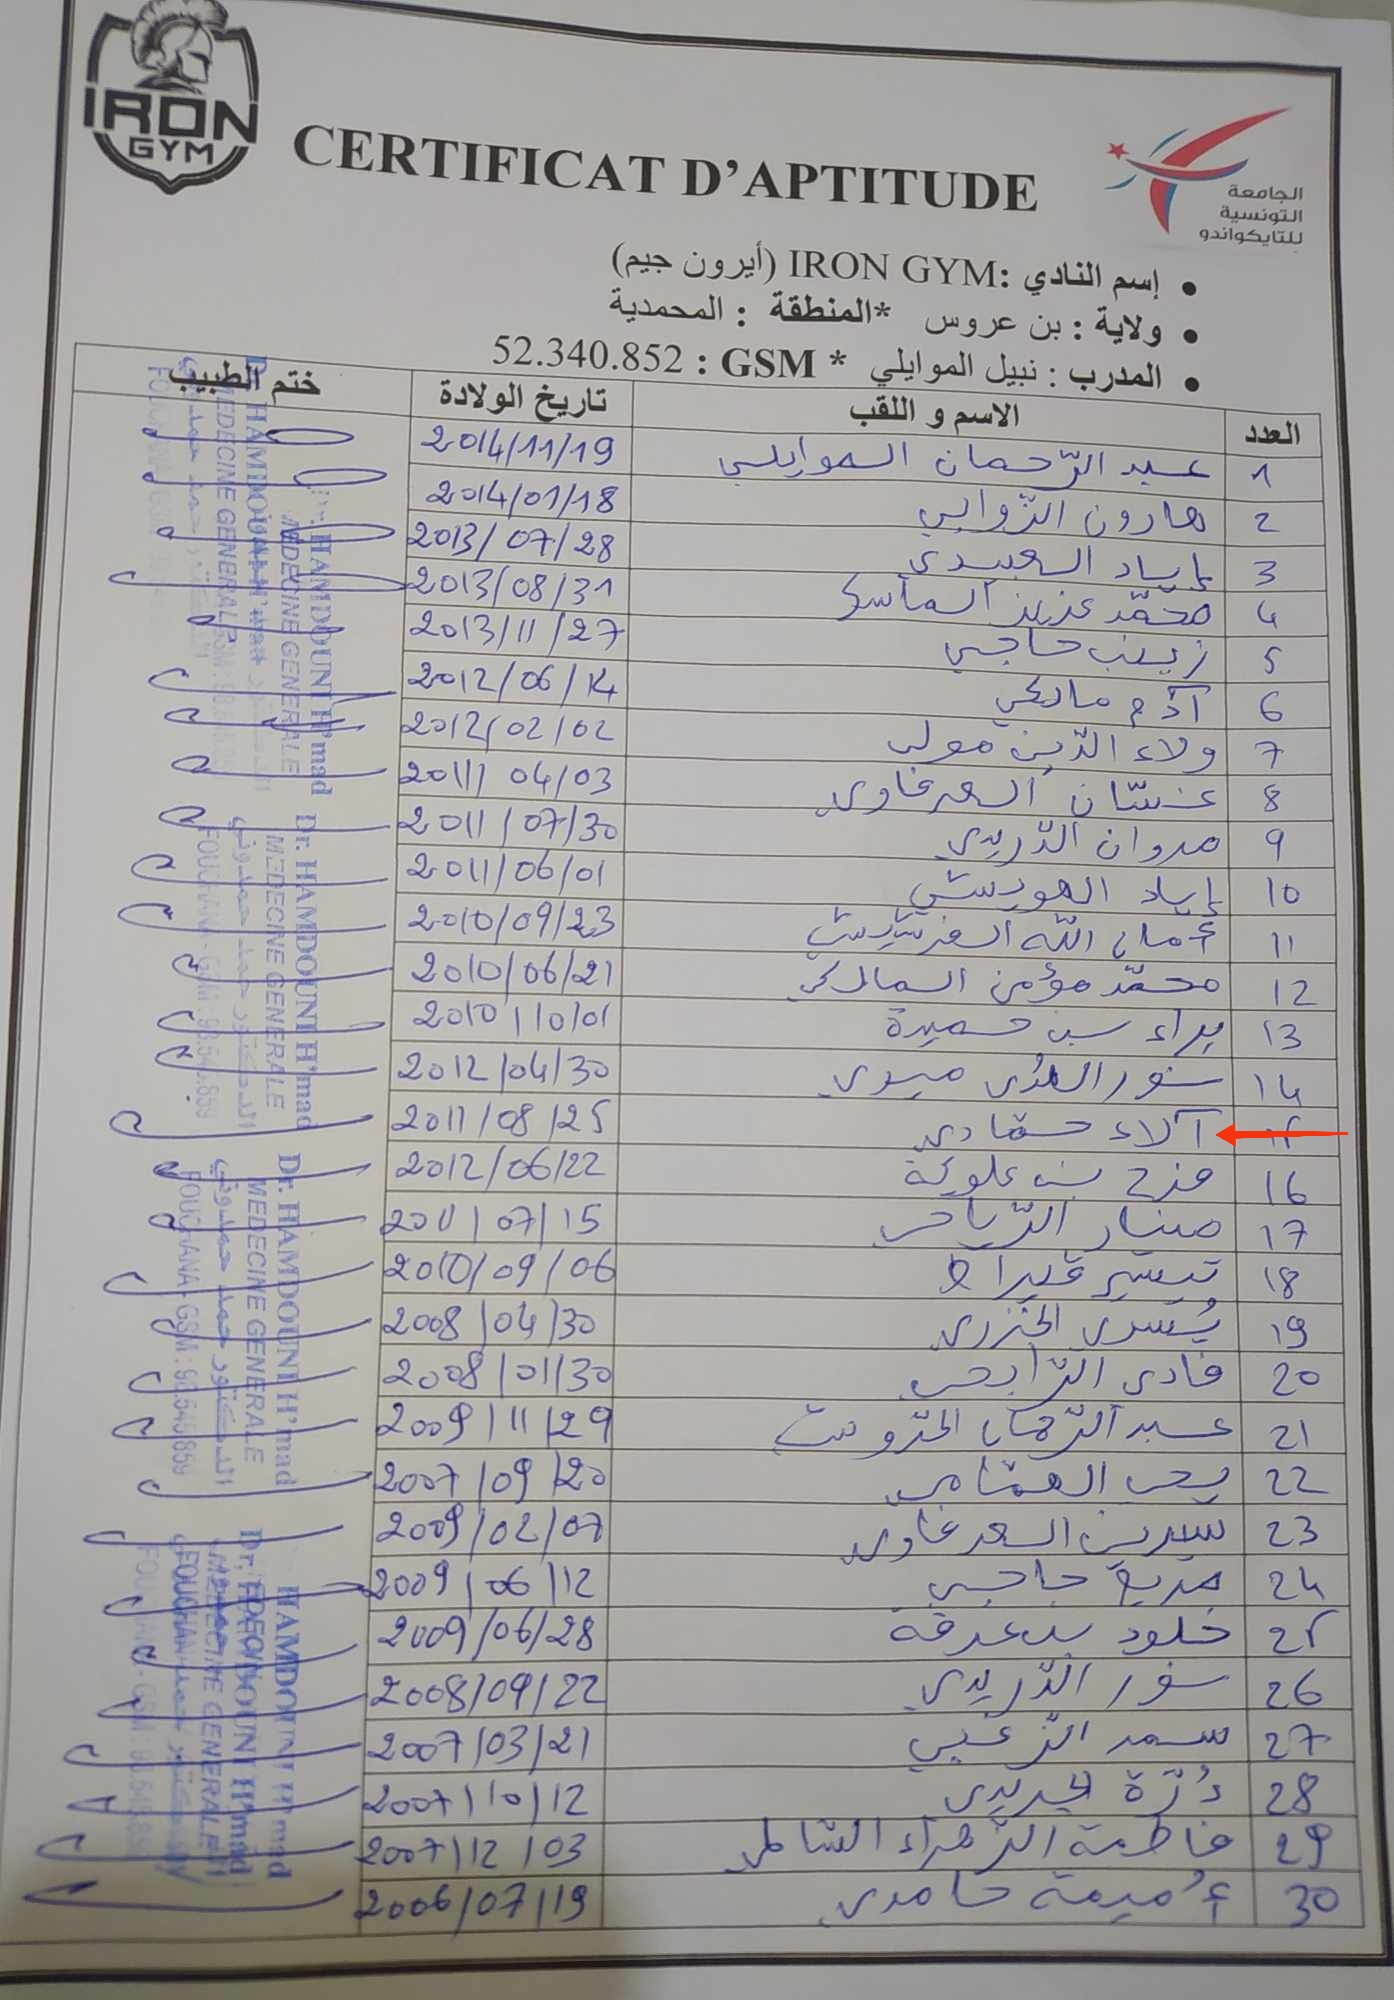 IRON
GYM
CERTIFICAT D'APTITUDE
الجامعة
التونسية
للتايكواندو
إسم النادي :IRON GYM (أيرون جيم)
ولاية : بن عروس *المنطقة : المحمدية
المدرب : نبيل الموايلي * GSM : 52.340.852
العدد الاسم و اللقب تاريخ الولادة ختم الطبيب
1 عبد الرّحمان الموايلي 2014/11/19
2 هارون الزّوابي 2014/01/18
3 إياد العبيدي 2013/07/28
4 محمّد عزيز 2013/08/31
5 زينب حاجي 2013/11/27
6 آدم مالكي 2012/06/14
7 ولاء الدّين مولى 2012/02/02
8 غسّان السعرغاوي 2011/04/03
9 مروان الدّريدي 2011/07/30
10 إياد 2011/06/01
11 أمان الله الفرشيشي 2010/09/23
12 محمّد مؤمن المالكي 2010/06/21
13 براء بن حميدة 2010/10/01
14 نور الهدى ميري 2012/04/30
15 آلاء حمّادي 2011/08/25
16 فرح بن علوية 2012/06/22
17 منار الرّياحي 2011/07/15
18 تيسير قيراط 2010/09/06
19 يُسرى الخنزري 2008/04/30
20 فادي الرّابحي 2008/01/30
21 عبد الرّحمان 2009/11/29
22 يحي العثماني 2007/09/20
23 سيرين السعرغاوي 2009/02/07
24 مرية حاجي 2009/06/12
25 خلود بن عرفة 2009/06/28
26 نور الدّريدي 2008/09/22
27 سمر الزّغبي 2007/03/21
28 دُرّة الجريدي 2007/10/12
29 فاطمة الزّهراء الشاملي 2007/12/03
30 أُميمة حامدي 2006/07/19
Dr. HAMDOUNI H'mad
MEDECINE GENERALE
الدكتور حمد حمدوني
FOUCHANA - GSM : 98.545.859
Dr. HAMDOUNI H'mad
MEDECINE GENERALE
الدكتور حمد حمدوني
FOUCHANA - GSM : 98.545.859